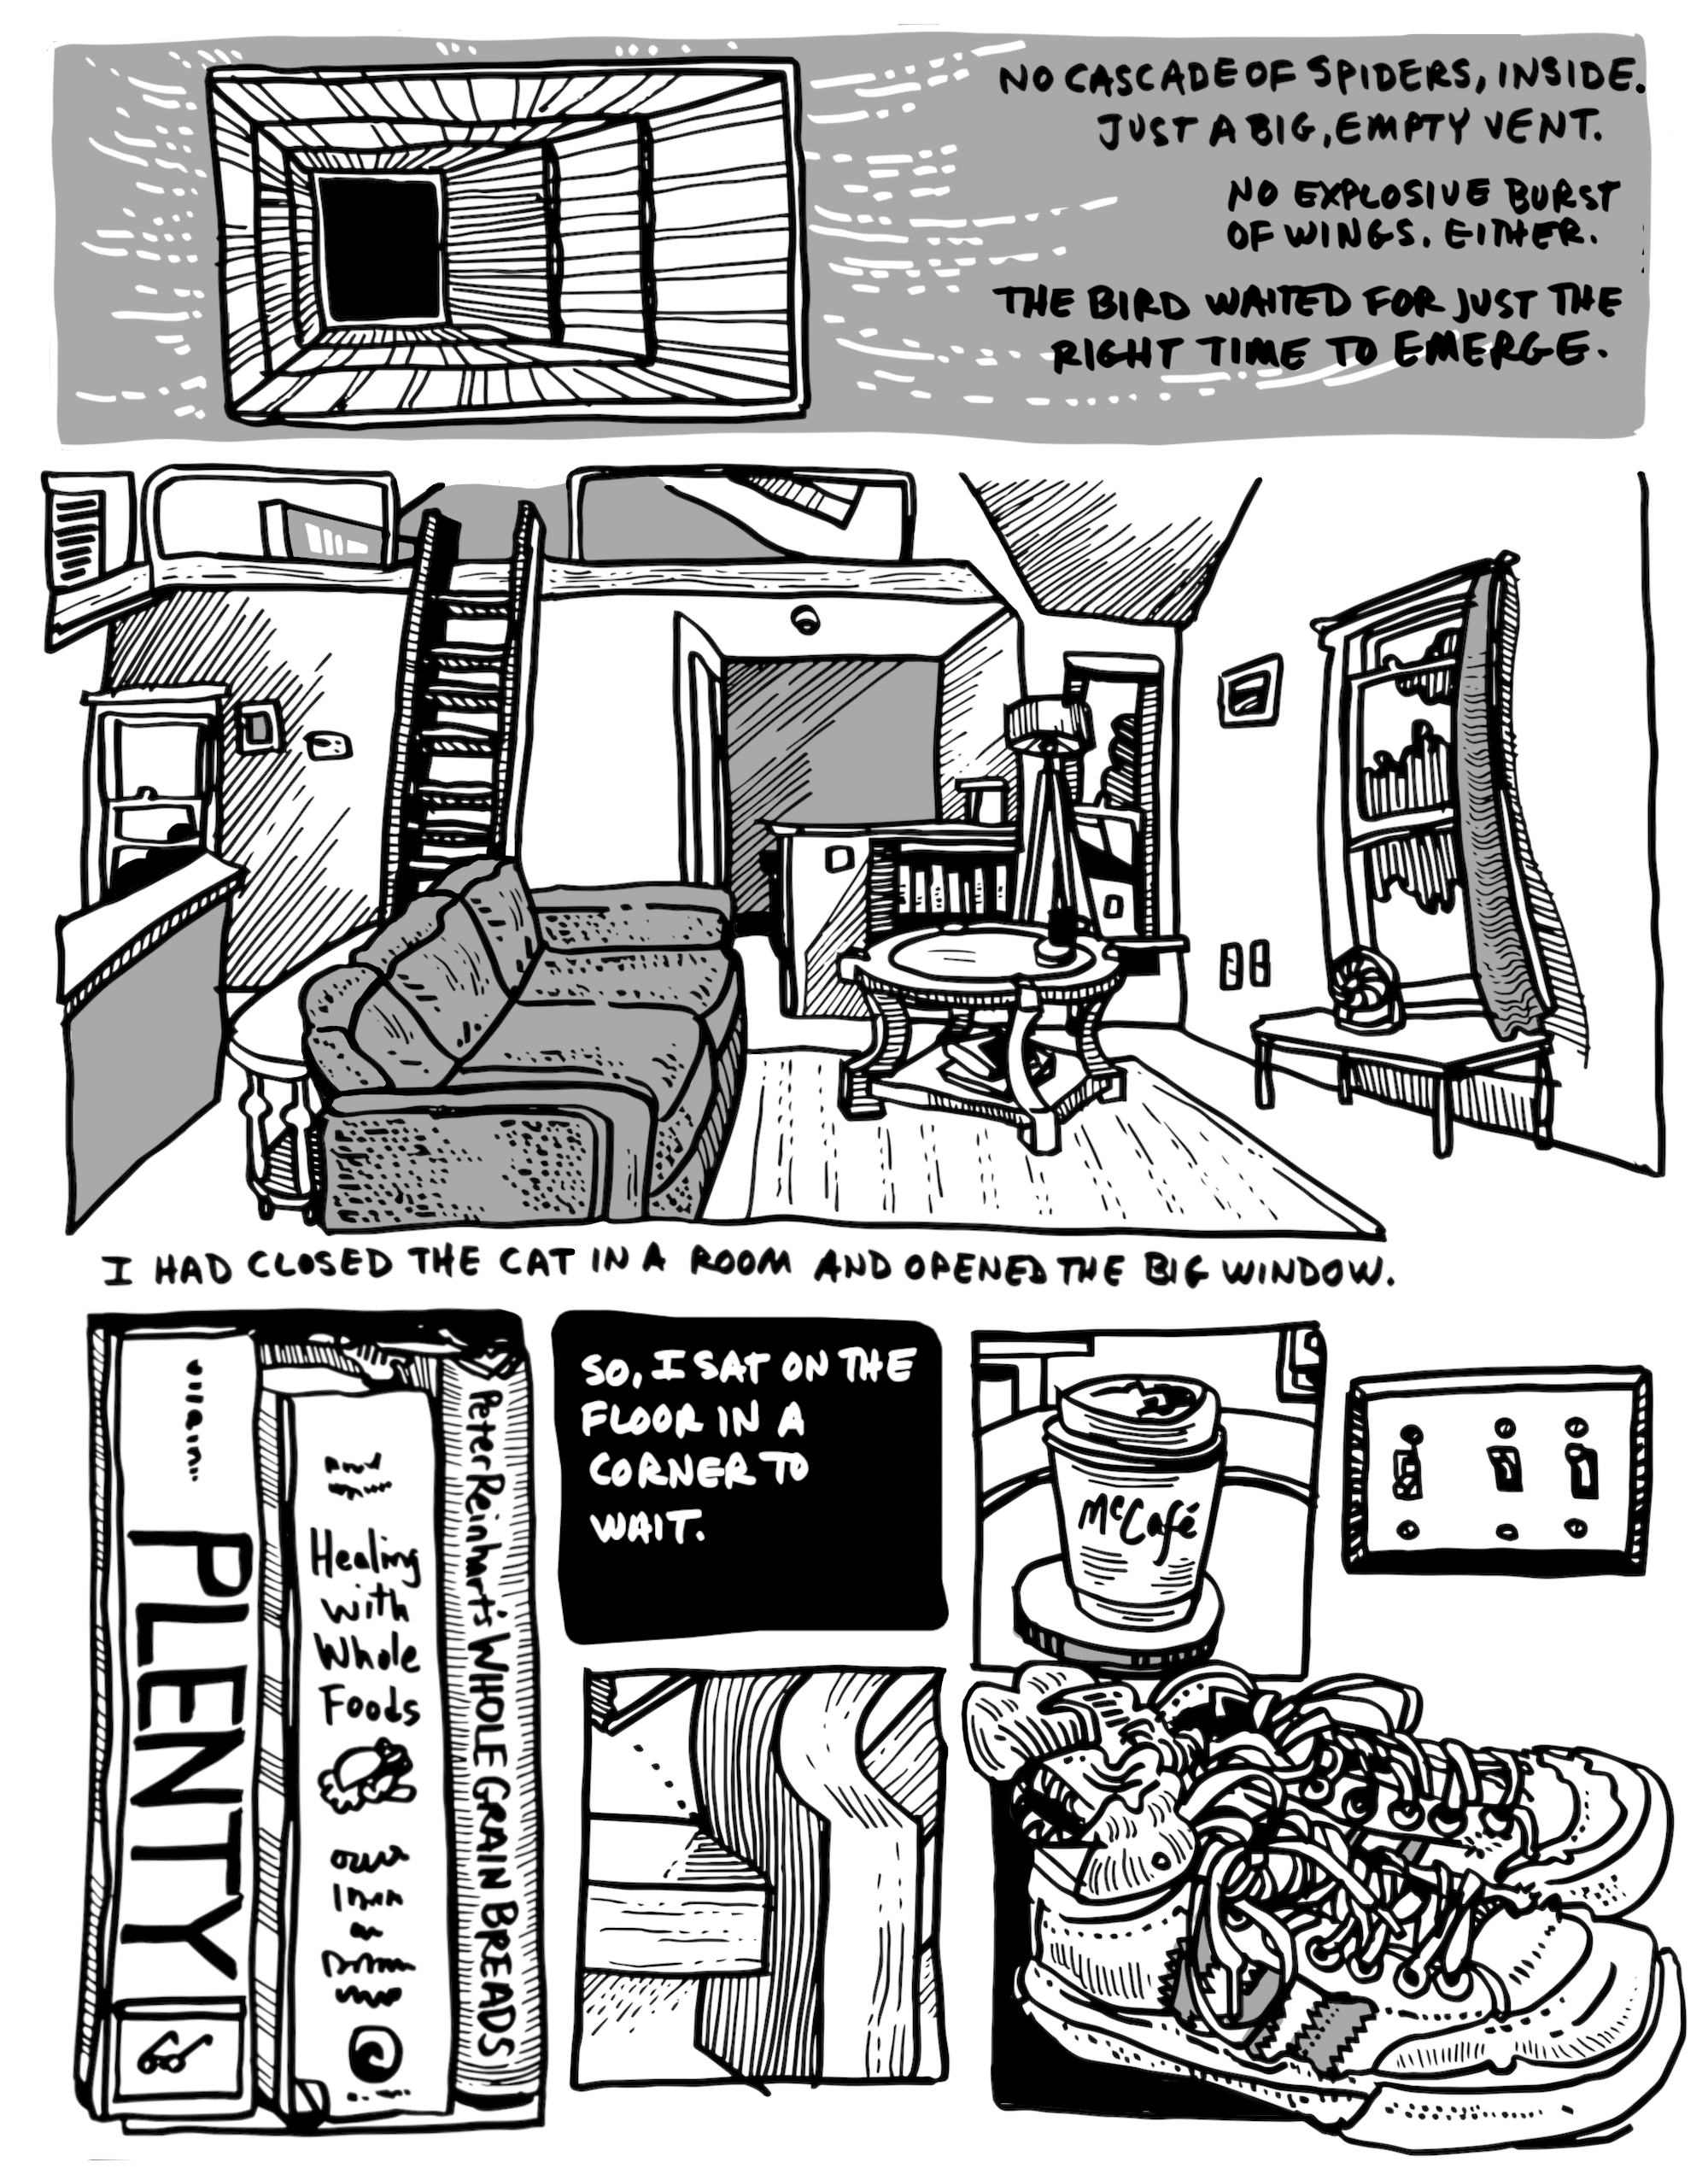 NO CASCADE OF SPIDERS, INSIDE.
JUST A BIG, EMPTY VENT.
NO EXPLOSIVE BURST
OF WINGS. EITHER.
THE BIRD WAITED FOR JUST THE
RIGHT TIME TO EMERGE.
I HAD CLOSED THE CAT IN A ROOM AND OPENED THE BIG WINDOW.
PLENTY
Healing
with
Whole
Foods
Peter Reinhart's WHOLE GRAIN BREADS
SO, I SAT ON THE
FLOOR IN A
CORNER TO
WAIT.
McCafé